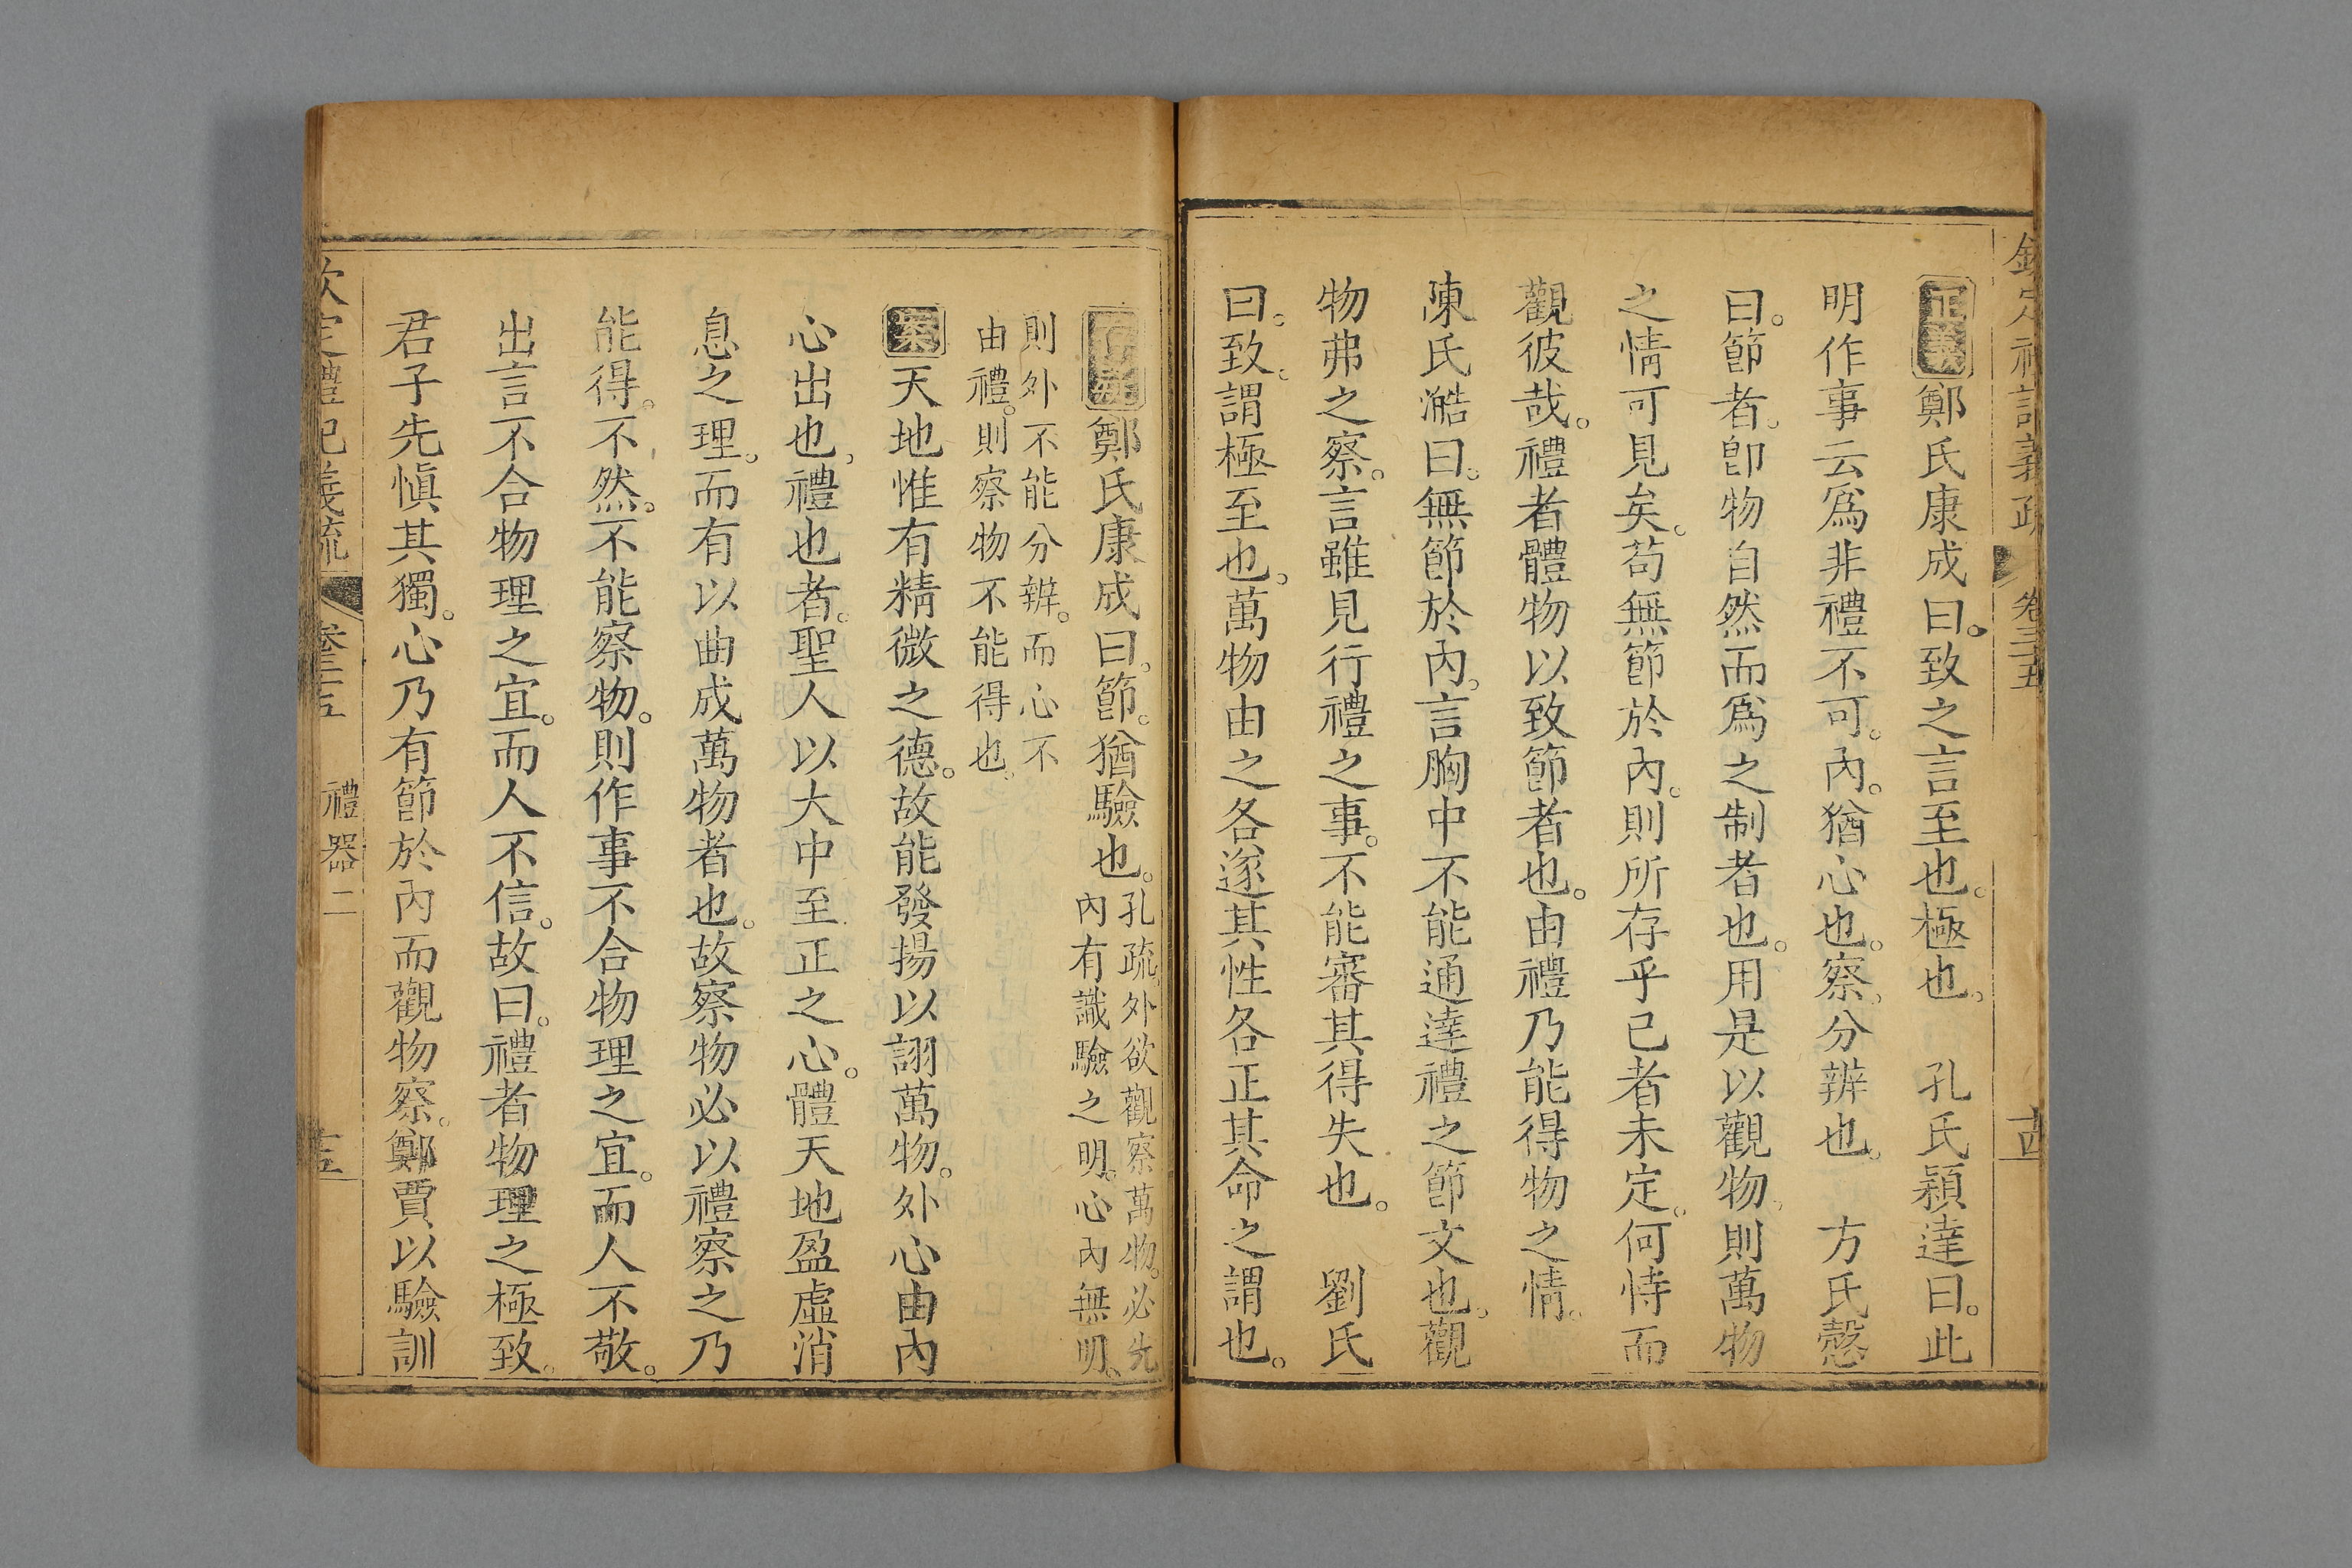 欽定禮記義疏 卷三十五 十四
正義鄭氏康成曰。致之言至也。極也。 孔氏穎達曰。此
明作事云爲非禮不可。內。猶心也。察。分辨也。 方氏慤
曰。節者。卽物自然而爲之制者也。用是以觀物。則萬物
之情可見矣。苟無節於內。則所存乎己者未定。何恃而
觀彼哉。禮者體物以致節者也。由禮乃能得物之情。
陳氏澔曰。無節於內。言胸中不能通達禮之節文也。觀
物弗之察。言雖見行禮之事。不能審其得失也。 劉氏
曰。致。謂極至也。萬物由之各遂其性各正其命之謂也。
鄭氏康成曰。節。猶驗也。孔疏。外欲觀察萬物。必先
內有識驗之明。心內無明。
則外不能分辨。而心不
由禮。則察物不能得也。
案天地惟有精微之德。故能發揚以詡萬物。外心由內
心出也。禮也者。聖人以大中至正之心。體天地盈虛消
息之理。而有以曲成萬物者也。故察物必以禮察之乃
能得。不然。不能察物。則作事不合物理之宜。而人不敬。
出言不合物理之宜。而人不信。故曰。禮者物理之極致。
君子先愼其獨。心乃有節於內而觀物察。鄭賈以驗訓
欽定禮記義疏 卷三十五 禮器二 十五